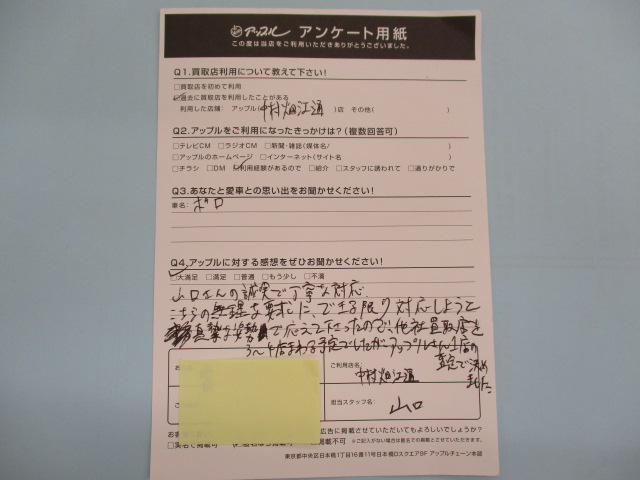 アップル アンケート用紙
この度は当店をご利用いただきありがとうございました。
Q1.買取店利用について教えて下さい!
□買取店を初めて利用
☑過去に買取店を利用したことがある
利用した店舗: アップル(中村畑江通)店 その他( )
Q2.アップルをご利用になったきっかけは?(複数回答可)
□テレビCM □ラジオCM □新聞・雑誌(媒体名/ )
□アップルのホームページ □インターネット(サイト名 )
□チラシ □DM ☑利用経験があるので □紹介 □スタッフに誘われて □通りがかりで
Q3.あなたと愛車との思い出をお聞かせください!
車名: ポロ
Q4.アップルに対する感想をぜひお聞かせください!
☑大満足 □満足 □普通 □もう少し □不満
山口さんの誠実で丁寧な対応
こちらの無理な要求に、できる限り対応しようと
真摯な姿勢で応えて下さったので、他社買取店を
3〜4店まわる予定でしたが、アップルさん1店の
査定で決め
ました
ご利用店名:
中村畑江通
担当スタッフ名:
山口
広告に掲載させていただいてもよろしいでしょうか?
□実名で掲載可 掲載可 □掲載不可 ※ご記入がない場合は匿名での掲載とさせていただきます。
東京都中央区日本橋1丁目16番11号日本橋Dスクエア8F アップルチェーン本部